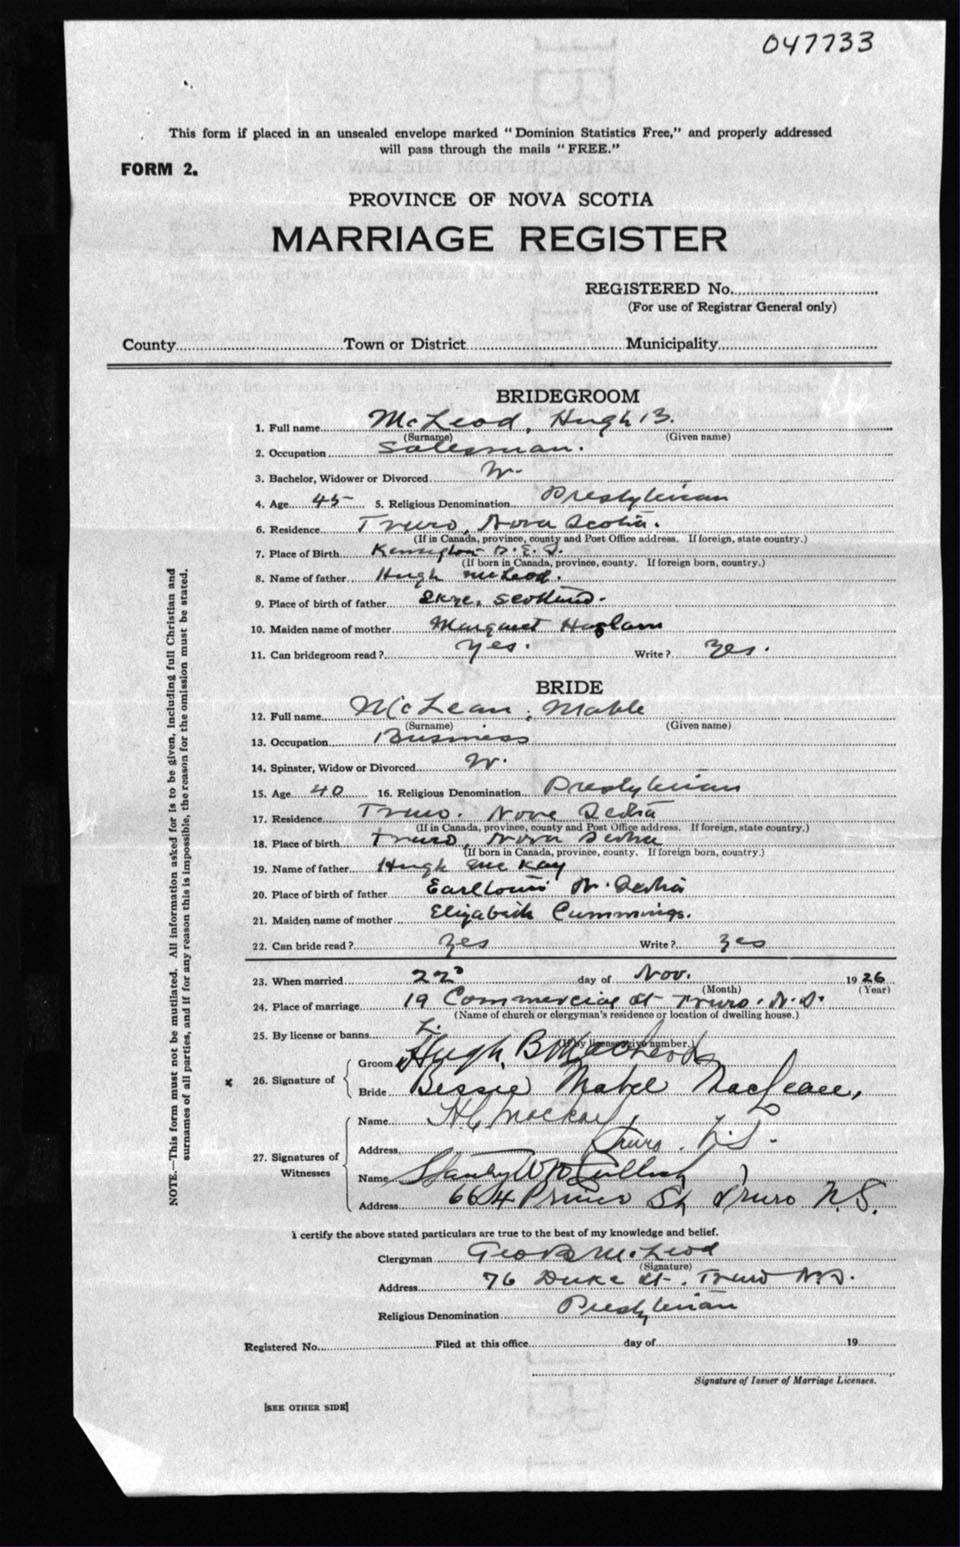 047733
This form if placed in an unsealed envelope marked "Dominion Statistics Free," and properly addressed
will pass through the mails "FREE."
FORM 2.
PROVINCE OF NOVA SCOTIA
MARRIAGE REGISTER
REGISTERED No.
(For use of Registrar General only)
County Town or District Municipality
BRIDEGROOM
1. Full name McLeod, Hugh B.
(Surname) (Given name)
2. Occupation Salesman.
3. Bachelor, Widower or Divorced W.
4. Age 45 5. Religious Denomination Presbyterian
6. Residence Truro, Nova Scotia.
(If in Canada, province, county and Post Office address. If foreign, state country.)
7. Place of Birth Kensington P.E.I.
(If born in Canada, province, county. If foreign born, country.)
8. Name of father Hugh McLeod.
9. Place of birth of father Skye, Scotland.
10. Maiden name of mother Margaret Haslam
11. Can bridegroom read? Yes. Write? Yes.
BRIDE
12. Full name McLean, Mable
(Surname) (Given name)
13. Occupation Business
14. Spinster, Widow or Divorced W.
15. Age 40 16. Religious Denomination Presbyterian
17. Residence Truro, Nova Scotia
(If in Canada, province, county and Post Office address. If foreign, state country.)
18. Place of birth Truro, Nova Scotia
(If born in Canada, province, county. If foreign born, country.)
19. Name of father Hugh McKay
20. Place of birth of father Earltown N. Scotia
21. Maiden name of mother Elizabeth Cummings.
22. Can bride read? Yes Write? Yes
23. When married 22 day of Nov. 1926
(Month) (Year)
24. Place of marriage 19 Commercial St Truro. N.S.
(Name of church or clergyman's residence or location of dwelling house.)
25. By license or banns L.
(If by license give number.)
x 26. Signature of Groom Hugh B MacLeod
Bride Bessie Mabel MacLean,
27. Signatures of Witnesses
Name H G Mackay
Address Truro. N.S.
Name Stanley W McCulloch
Address 664 Prince St Truro N.S.
I certify the above stated particulars are true to the best of my knowledge and belief.
Clergyman Geo McLeod
(Signature)
Address 76 Duke St. Truro N.S.
Religious Denomination Presbyterian
Registered No. Filed at this office day of 19
Signature of Issuer of Marriage Licenses.
[SEE OTHER SIDE]
NOTE.—This form must not be mutilated. All information asked for is to be given, including full Christian and
surnames of all parties, and if for any reason this is impossible, the reason for the omission must be stated.